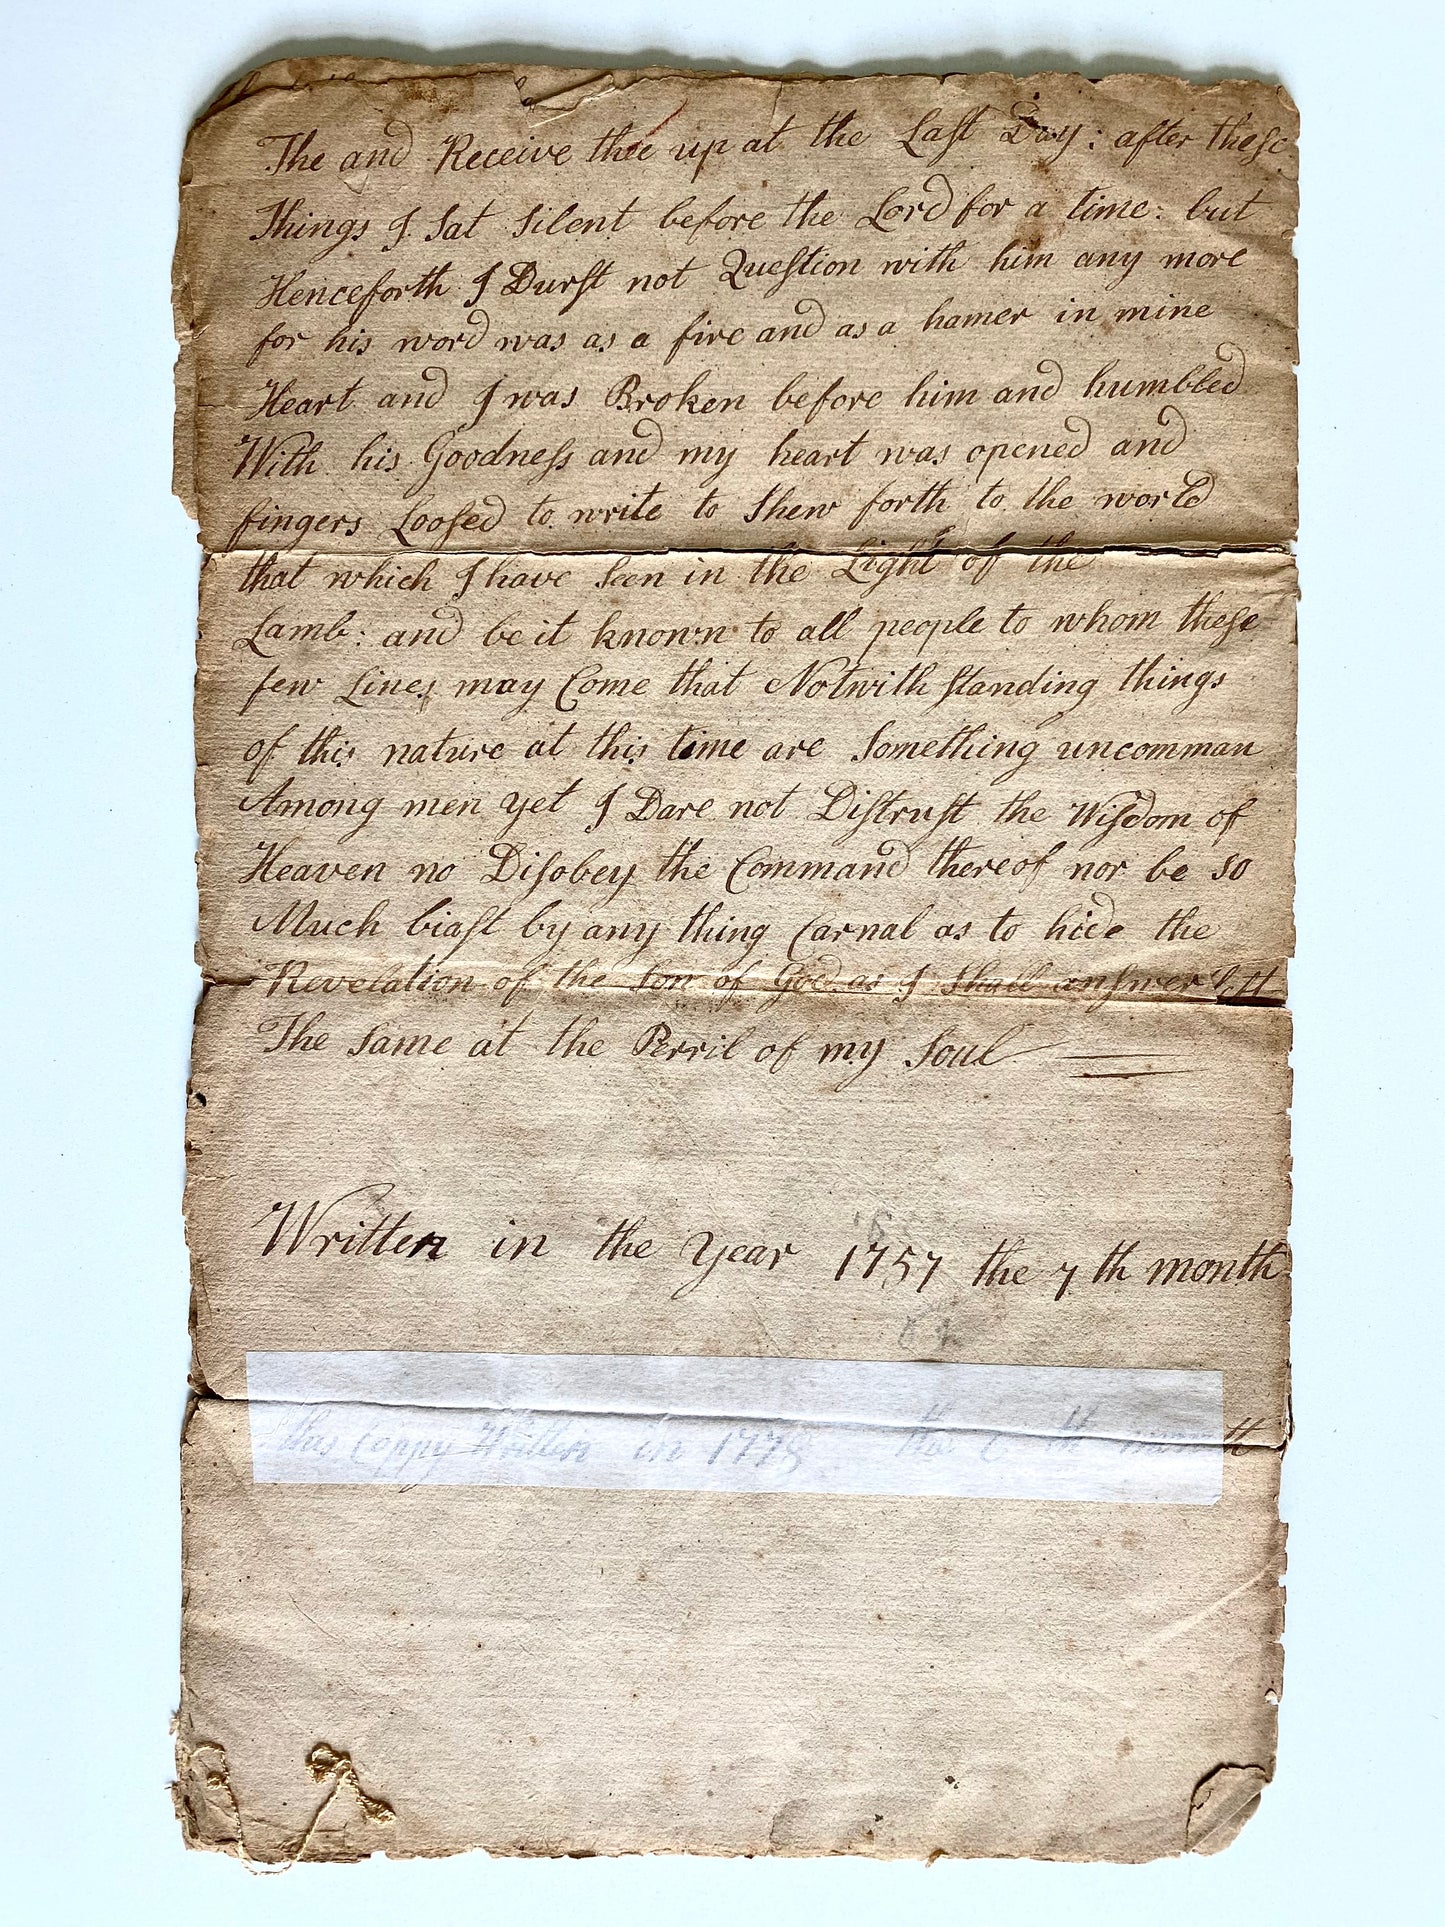 The and Receive thee up at the Last Day: after these
Things I Sat Silent before the Lord for a time: but
Henceforth I Durst not Question with him any more
for his word was as a fire and as a hamer in mine
Heart and I was Broken before him and humbled
With his Goodness and my heart was opened and
fingers Loosed to write to Shew forth to the world
that which I have Seen in the Light of the
Lamb: and be it known to all people to whom these
few Lines may Come that Notwith Standing things
of this nature at this time are Something uncomman
Among men yet I Dare not Distrust the Wisdom of
Heaven no Disobey the Command thereof nor be so
Much biast by any thing Carnal as to hide the
Revelation of the Son of God as I Shall answer
The Same at the Perril of my Soul
Written in the Year 1757 the 7th month
this Coppy Written in 1778 the th month